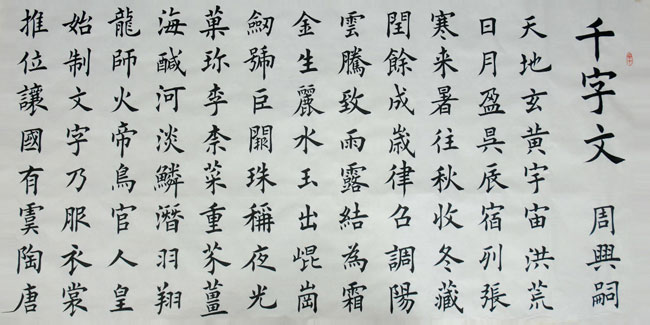 千字文 周興嗣
天地玄黃宇宙洪荒
日月盈昃辰宿列張
寒来暑往秋收冬藏
閏餘成歳律召調陽
雲騰致雨露結為霜
金生麗水玉出崐崗
劒號巨闕珠稱夜光
菓珎李柰菜重芥薑
海醎河淡鱗潛羽翔
龍師火帝鳥官人皇
始制文字乃服衣裳
推位讓國有虞陶唐